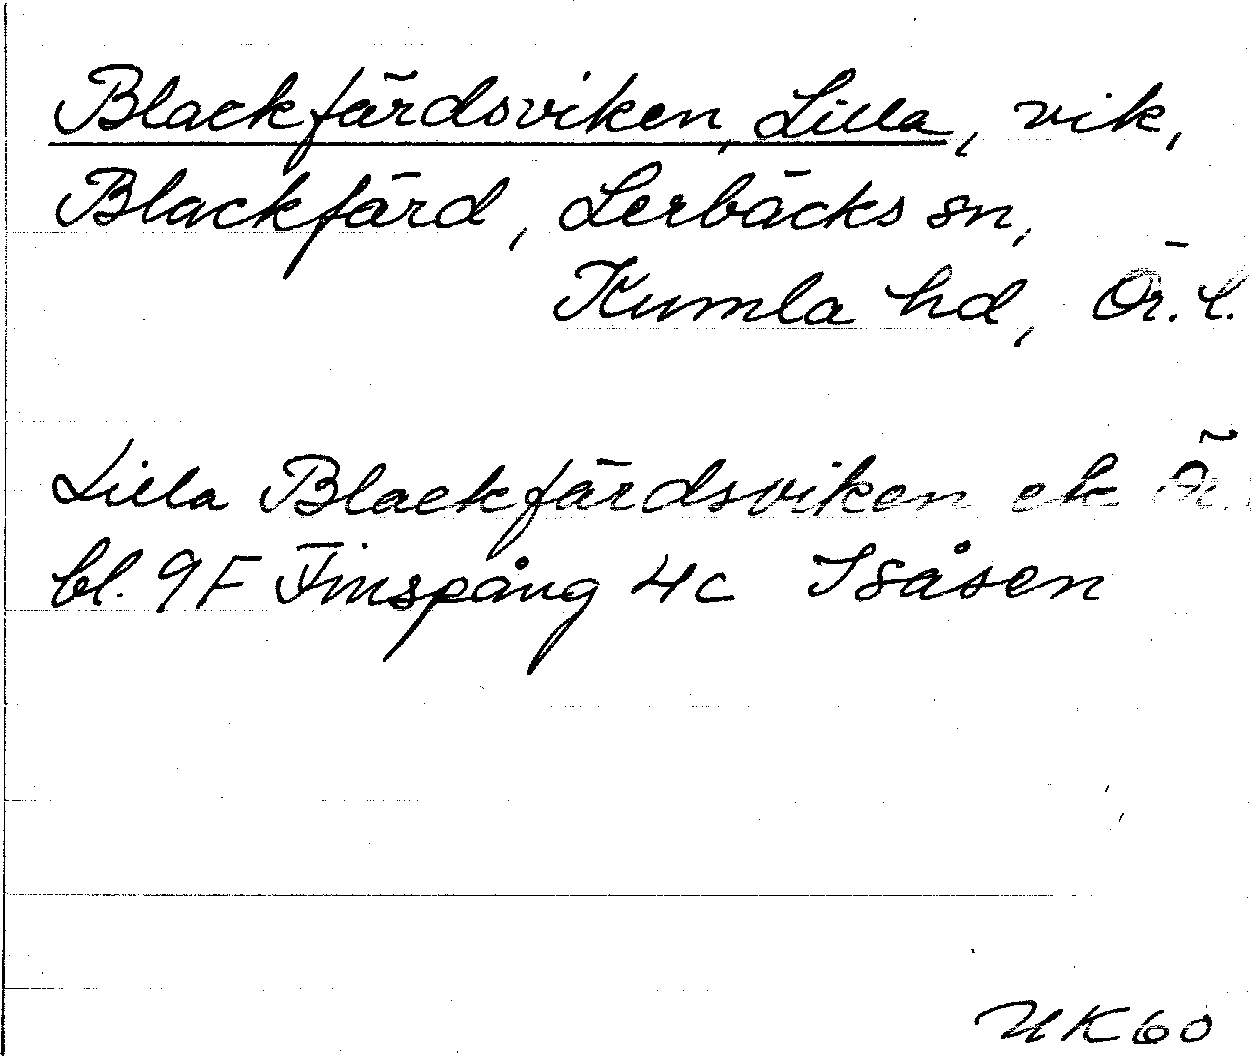 Blackfärdsviken, Lilla, vik,
Blackfärd, Lerbäcks sn,
Kumla hd, Ör. l.
Lilla Blackfärdsviken ek Är.
bl. 9F Finspång 4c Isåsen
UK60